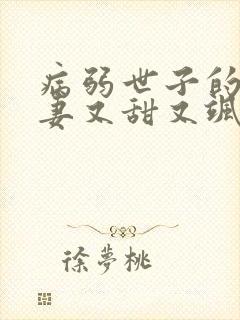 病弱世子的
妻又甜又飒
徐夢桃